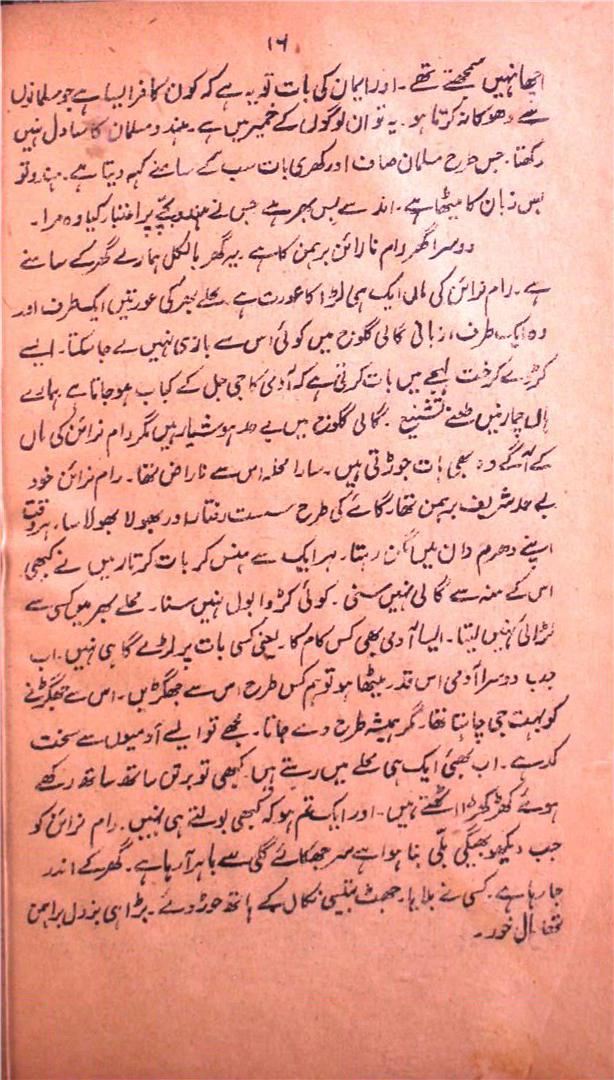 ۱۶
اچھا نہیں سمجھتے تھے۔ اور ایمان کی بات تو یہ ہے کہ کون کافر ایسا ہے جو مسلمانوں
سے دھوکا نہ کرتا ہو۔ یہ تو ان لوگوں کے خمیر میں ہے۔ ہندو مسلمان کا سا دل نہیں
رکھتا۔ جس طرح مسلمان صاف اور کھری بات سب کے سامنے کہہ دیتا ہے۔ ہندو تو
بس زبان کا میٹھا ہے۔ اندر سے بس بھرا ہے جس نے ہندو بچے پر اعتبار کیا وہ مرا۔
دوسرا گھر رام نارائن برہمن کا ہے۔ یہ گھر بالکل ہمارے گھر کے سامنے
ہے۔ رام نرائن کی ماں ایک ہی لڑاکا عورت ہے۔ محلے بھر کی عورتیں ایک طرف اور
وہ ایک طرف، زبانی گالی گلوج میں کوئی اس سے بازی نہیں لے جا سکتا۔ ایسے
کڑوے کرخت لہجے میں بات کرتی ہے کہ آدمی کا جی جل کے کباب ہو جاتا ہے ہمارے
ہاں چمارنیں طعنے تشنیع گالی گلوج میں بے حد ہوشیار ہیں مگر رام نرائن کی ماں
کے آگے وہ بھی ہات جوڑتی ہیں۔ سارا محلہ اس سے ناراض تھا۔ رام نرائن خود
بے حد شریف برہمن تھا، گائے کی طرح سست رفتار اور بھولا بھولا سا، ہر وقت
اپنے دھرم دان میں مگن رہتا۔ ہر ایک سے ہنس کر بات کرتا، میں نے کبھی
اس کے منہ سے گالی نہیں سنی۔ کوئی کڑوا بول نہیں سنا۔ محلے بھر میں کسی سے
لڑائی نہیں لیتا۔ ایسا آدمی بھی کس کام کا۔ یعنی کسی بات پر لڑے گا ہی نہیں۔ اب
جب دوسرا آدمی اس قدر میٹھا ہو تو ہم کس طرح اس سے جھگڑیں۔ اس سے جھگڑنے
کو بہت جی چاہتا تھا۔ مگر ہمیشہ طرح دے جاتا۔ مجھے تو ایسے آدمیوں سے سخت
کد ہے۔ اب بھئی ایک ہی محلے میں رہتے ہیں کبھی تو برتن ساتھ ساتھ رکھے
ہوئے کھڑکھڑا اٹھتے ہیں۔ اور ایک تم ہو کہ کبھی بولتے ہی نہیں۔ رام نرائن کو
جب دیکھو بھیگی بلی بنا ہوا ہے سر جھکائے گلی سے باہر آ رہا ہے۔ گھر کے اندر
جا رہا ہے۔ کسی نے بلایا۔ جھٹ بتیسی نکال کے ہاتھ جوڑ دئے۔ بڑا ہی بزدل براہمن
تھا۔ دال خور۔